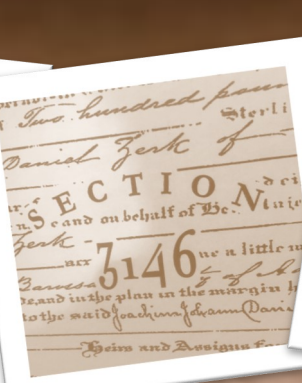 Two hundred poun
Sterli
Daniel Zerk of
SECTION
e and on behalf of He
Zerk
3146
acr
ne a little w
Baross
ty of A
de, and in the plan in the margin h
to the said Joachim Johann Dani
Heirs and Assigns fo